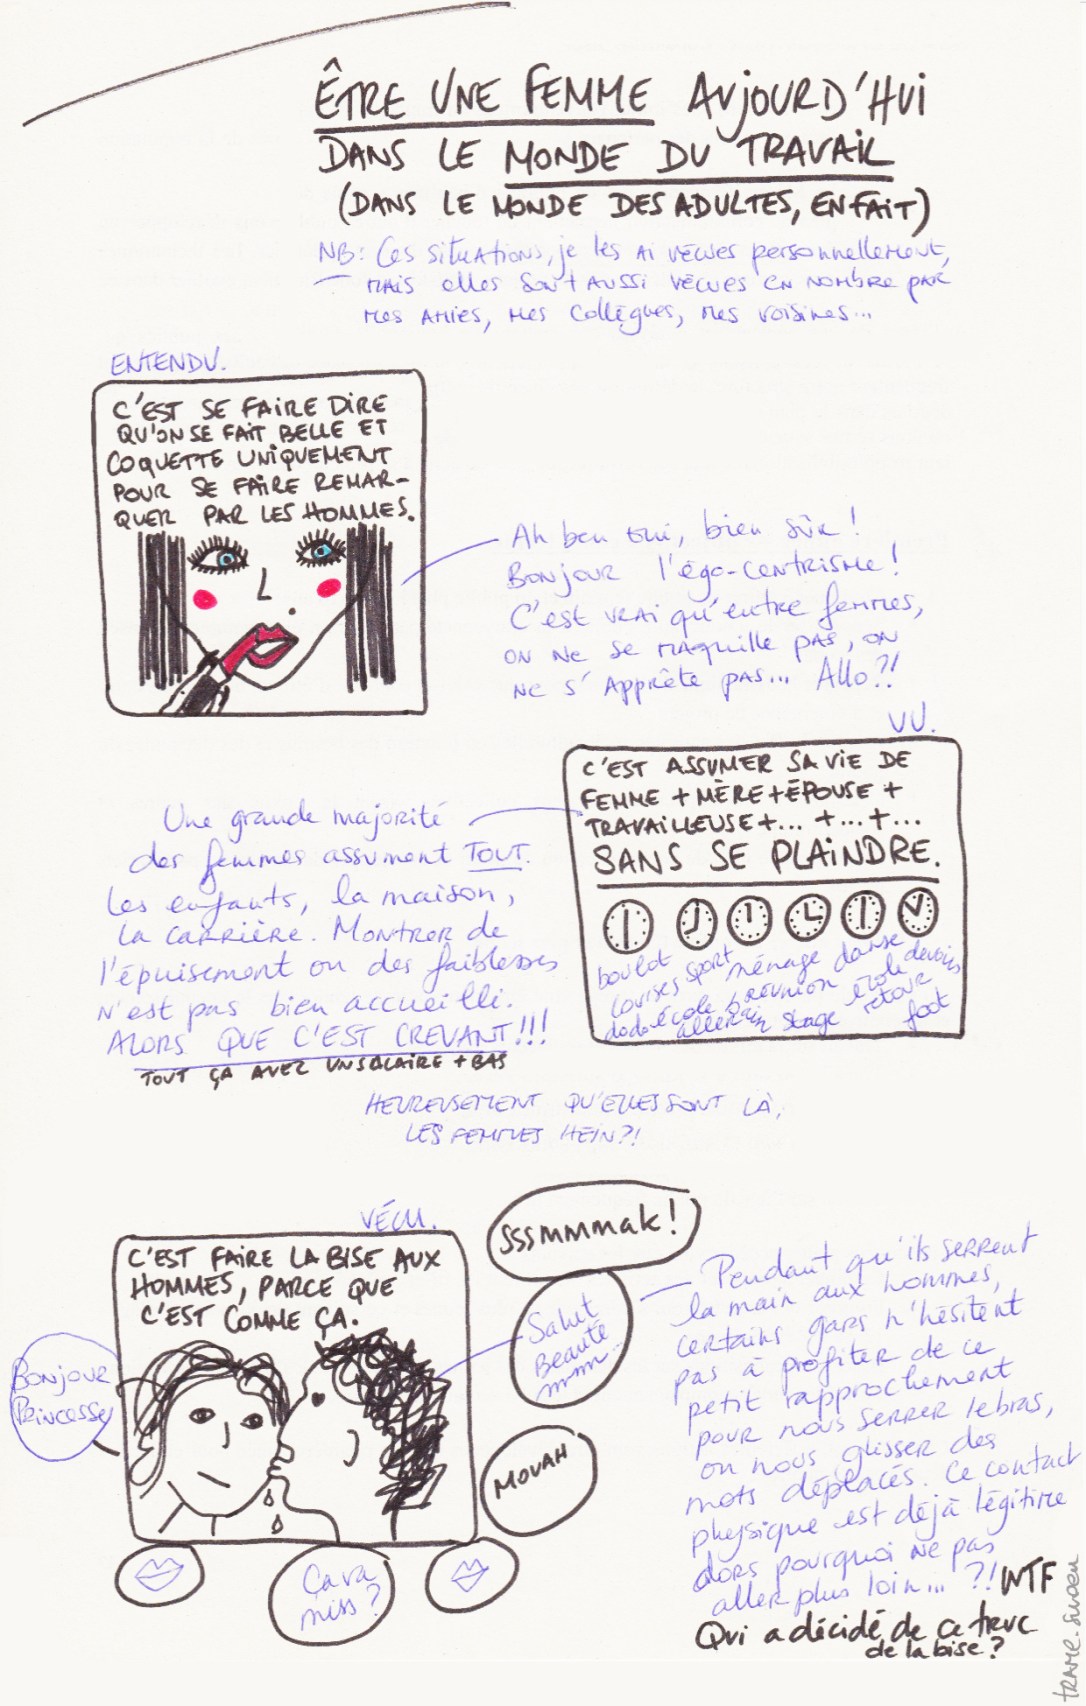 ÊTRE UNE FEMME AUJOURD'HUI
DANS LE MONDE DU TRAVAIL
(DANS LE MONDE DES ADULTES, EN FAIT)
NB: Ces situations, je les ai vécues personnellement,
mais elles sont aussi vécues en nombre par
mes amies, mes collègues, mes voisines...
ENTENDU.
C'EST SE FAIRE DIRE
QU'ON SE FAIT BELLE ET
COQUETTE UNIQUEMENT
POUR SE FAIRE REMAR-
QUER PAR LES HOMMES.
Ah ben oui, bien sûr !
Bonjour l'égo-centrisme !
C'est vrai qu'entre femmes,
on ne se maquille pas, on
ne s'apprête pas... Allo?!
VU.
C'EST ASSUMER SA VIE DE
FEMME + MÈRE + ÉPOUSE +
TRAVAILLEUSE + ... + ... + ...
SANS SE PLAINDRE.
boulot
courses sport ménage danse
dodo école réunion école devoirs
stage retour foot
Une grande majorité
des femmes assument TOUT.
Les enfants, la maison,
la carrière. Montrer de
l'épuisement ou des faiblesses
n'est pas bien accueilli.
ALORS QUE C'EST CREVANT!!!
TOUT ÇA AVEC UN SALAIRE + BAS
HEUREUSEMENT QU'ELLES SONT LÀ,
LES FEMMES HEIN?!
VÉCU.
C'EST FAIRE LA BISE AUX
HOMMES, PARCE QUE
C'EST COMME ÇA.
Bonjour
Princesse
SSSmmmak !
Salut
Beauté
mmm...
MOUAH
Ça va
miss ?
Pendant qu'ils serrent
la main aux hommes,
certains gars n'hésitent
pas à profiter de ce
petit rapprochement
pour nous serrer le bras,
ou nous glisser des
mots déplacés. Ce contact
physique est déjà légitime
alors pourquoi ne pas
aller plus loin... ?! WTF
Qui a décidé de ce truc
de la bise ?